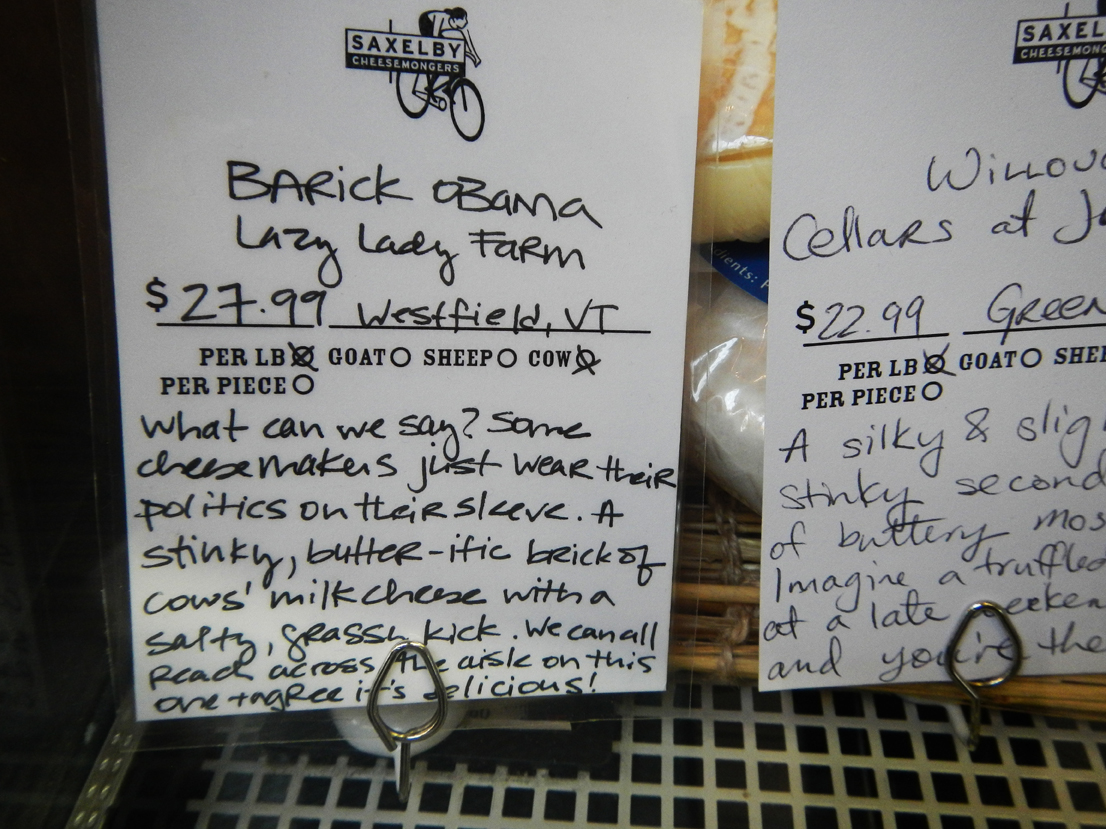 SAXELBY
CHEESEMONGERS
BARick OBama
Lazy Lady Farm
$27.99 Westfield, VT
PER LB GOAT SHEEP COW
PER PIECE
What can we say? Some
cheesemakers just wear their
politics on their sleeve. A
stinky, butter-ific brick of
cows' milk cheese with a
salty, grassy kick. We can all
reach across the aisle on this
one + agree it's delicious!
SAXEL
CHEESEMO
Willou
Cellars at
$22.99 Green
PER LB GOAT SHEE
PER PIECE
A silky & slig
stinky second
of buttery mos
Imagine a truffled
at a late weeken
and you're the
dients: